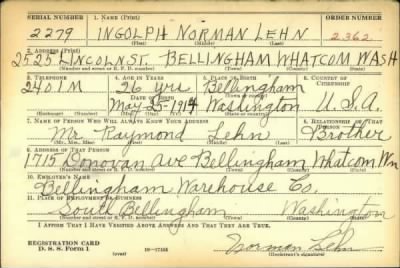 SERIAL NUMBER 1. NAME (Print) ORDER NUMBER
2279 INGOLPH NORMAN LEHN 2362
(First) (Middle) (Last)
2. ADDRESS (Print)
2525 LINCOLN ST. BELLINGHAM WHATCOM WASH
(Number and street or R. F. D. number) (Town) (County) (State)
3. TELEPHONE 4. AGE IN YEARS 5. PLACE OF BIRTH 6. COUNTRY OF CITIZENSHIP
2401M 26 yrs Bellingham
DATE OF BIRTH (Town or county)
May 25-1914 Washington U.S.A.
(Mo.) (Day) (Yr.) (State or country)
7. NAME OF PERSON WHO WILL ALWAYS KNOW YOUR ADDRESS 8. RELATIONSHIP OF THAT PERSON
Mr. Raymond Lehn Brother
(Mr., Mrs., Miss) (First) (Middle) (Last)
9. ADDRESS OF THAT PERSON
1715 Donovan Ave Bellingham Whatcom Wn
(Number and street or R. F. D. number) (Town) (County) (State)
10. EMPLOYER'S NAME
Bellingham Warehouse Co.
11. PLACE OF EMPLOYMENT OR BUSINESS
South Bellingham Washington
(Number and street or R. F. D. number) (Town) (County) (State)
I AFFIRM THAT I HAVE VERIFIED ABOVE ANSWERS AND THAT THEY ARE TRUE.
REGISTRATION CARD
D. S. S. Form 1 (over) Norman Lehn
(Registrant's signature)